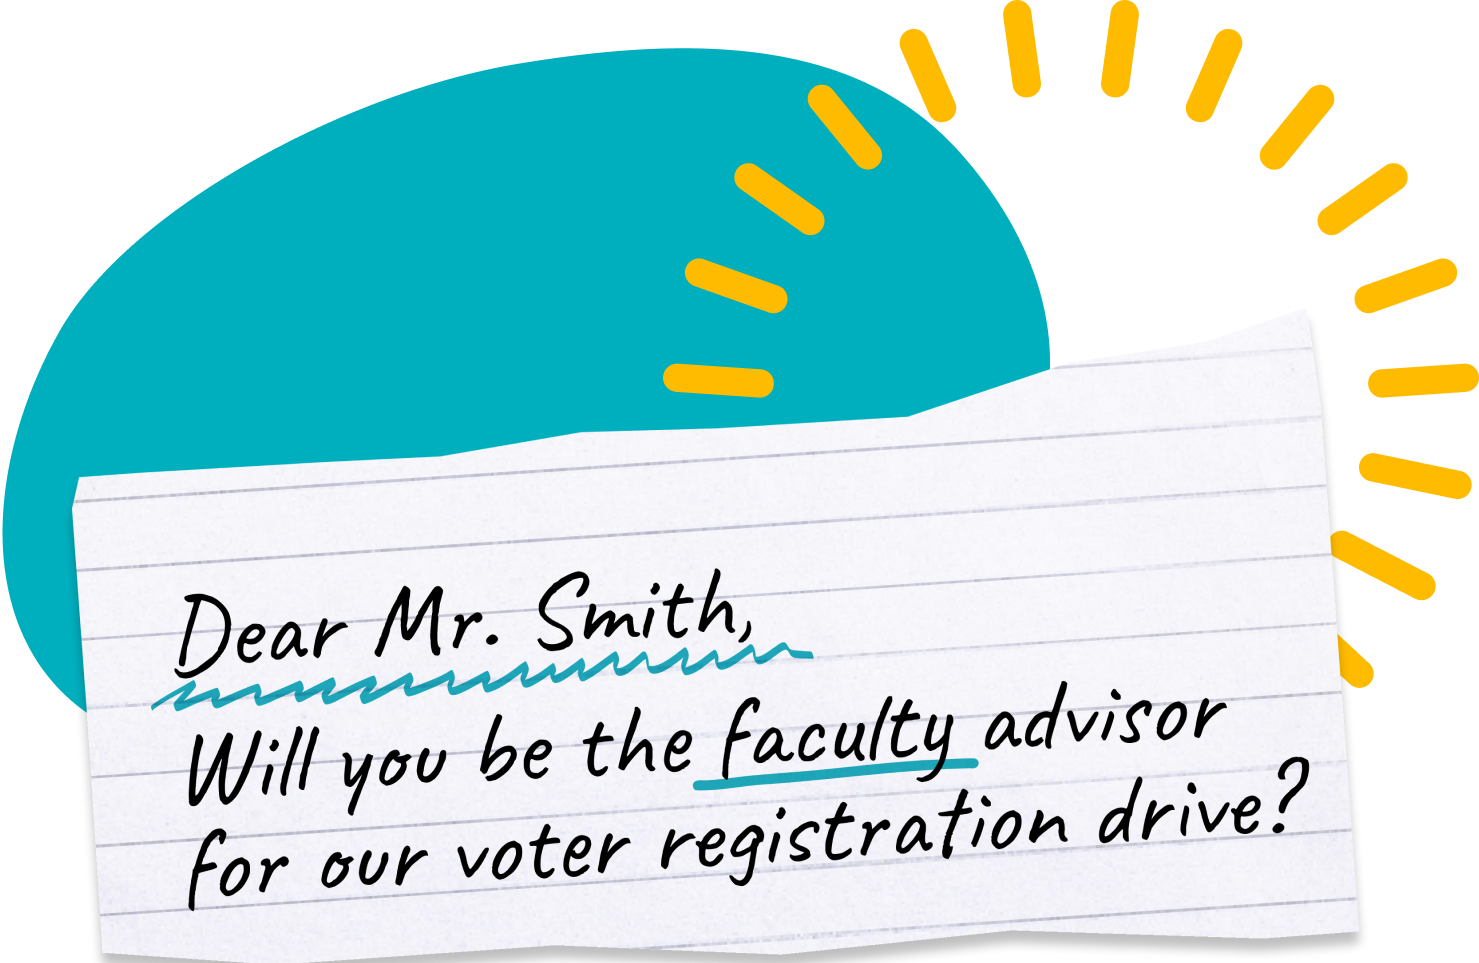 Dear Mr. Smith,
Will you be the faculty advisor
for our voter registration drive?